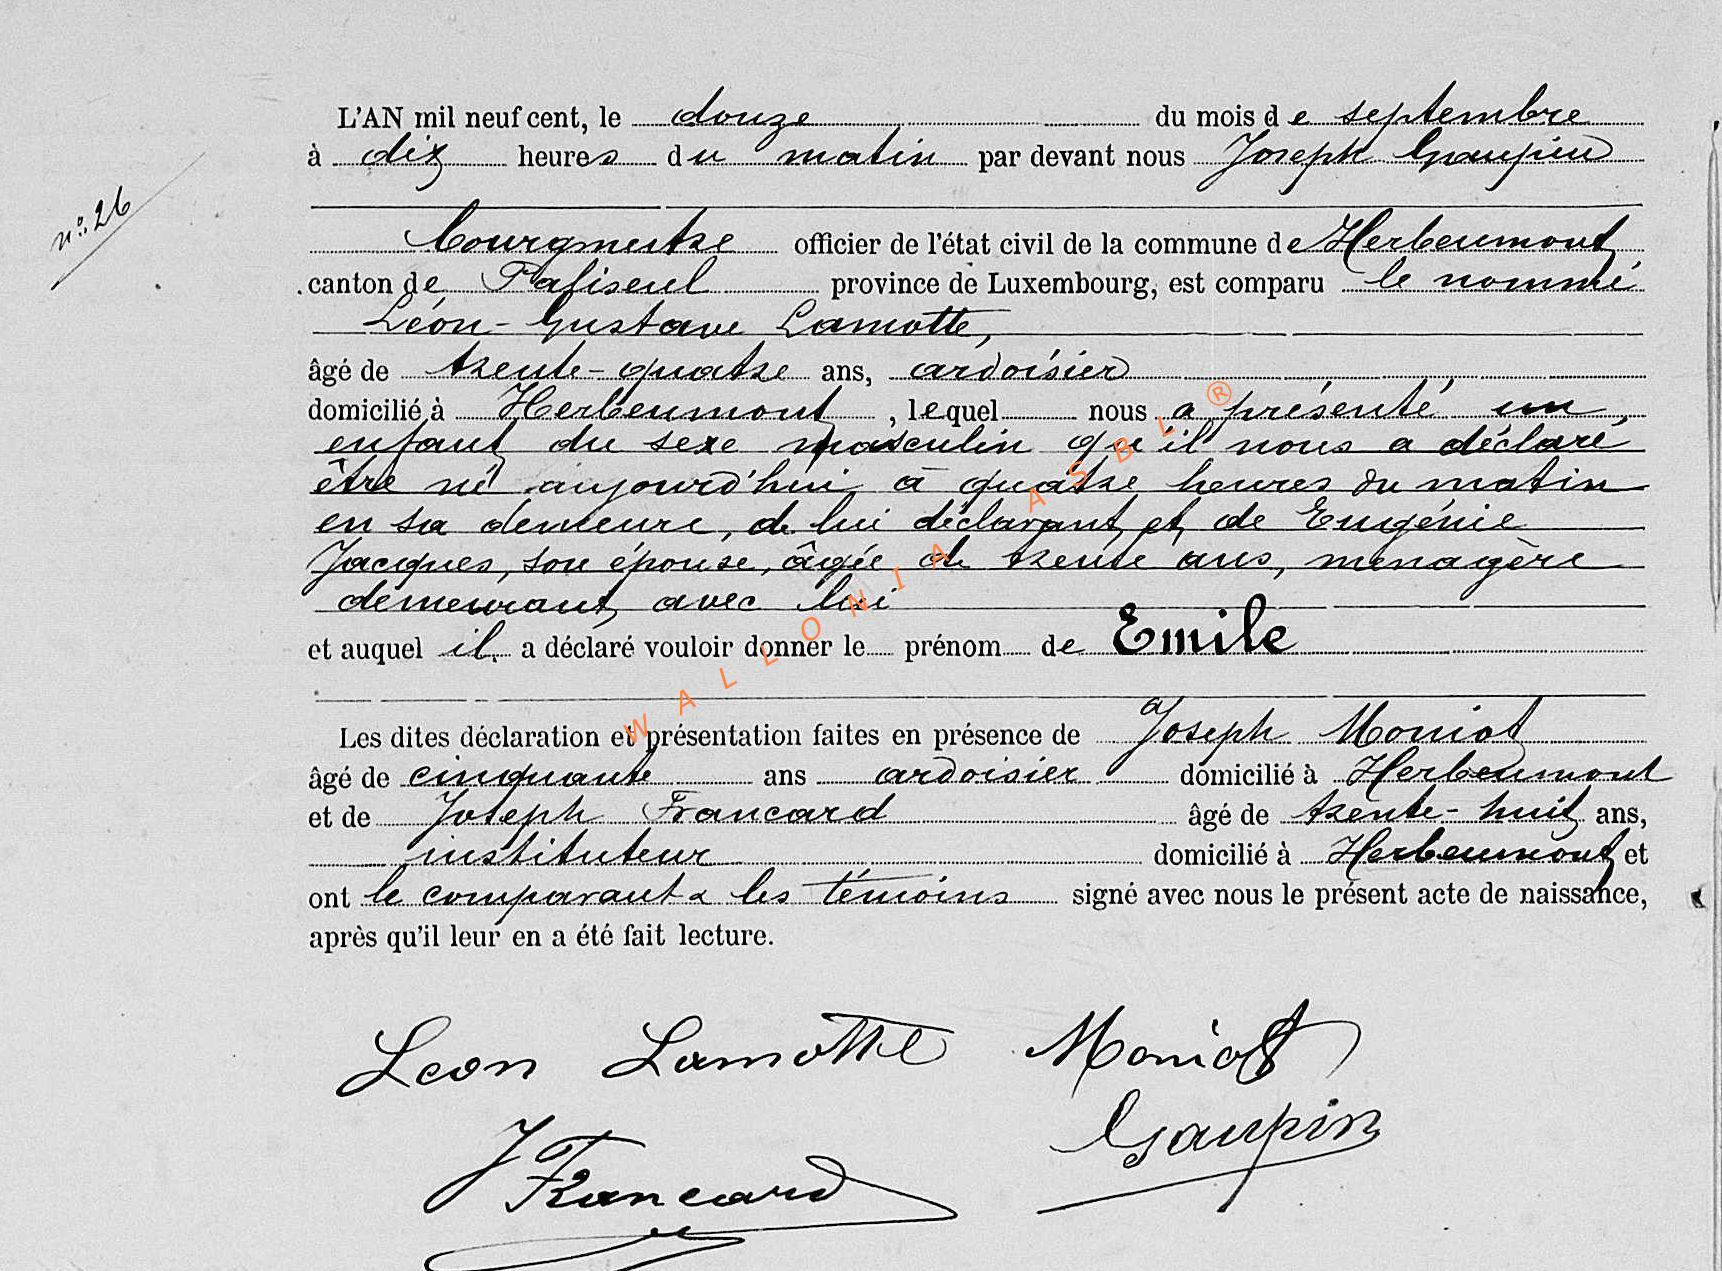 L'AN mil neuf cent, le douze du mois de septembre
à dix heures du matin par devant nous Joseph Gaupin
n° 26
bourgmestre officier de l'état civil de la commune de Herbeumont
canton de Paliseul province de Luxembourg, est comparu le nommé
Léon-Gustave Lamotte,
âgé de trente-quatre ans, ardoisier
domicilié à Herbeumont, lequel nous a présenté un
enfant du sexe masculin qu'il nous a déclaré
être né aujourd'hui à quatre heures du matin
en sa demeure, de lui déclarant et de Eugénie
Jacques, son épouse, âgée de trente ans, ménagère
demeurant avec lui
et auquel il a déclaré vouloir donner le prénom de Emile
Les dites déclaration et présentation faites en présence de Joseph Moniot
âgé de cinquante ans ardoisier domicilié à Herbeumont
et de Joseph Francard âgé de trente-huit ans,
instituteur domicilié à Herbeumont et
ont le comparant & les témoins signé avec nous le présent acte de naissance,
après qu'il leur en a été fait lecture.
Leon Lamotte Moniot
Gaupin
J Francard
WALLONIA ASBL ®